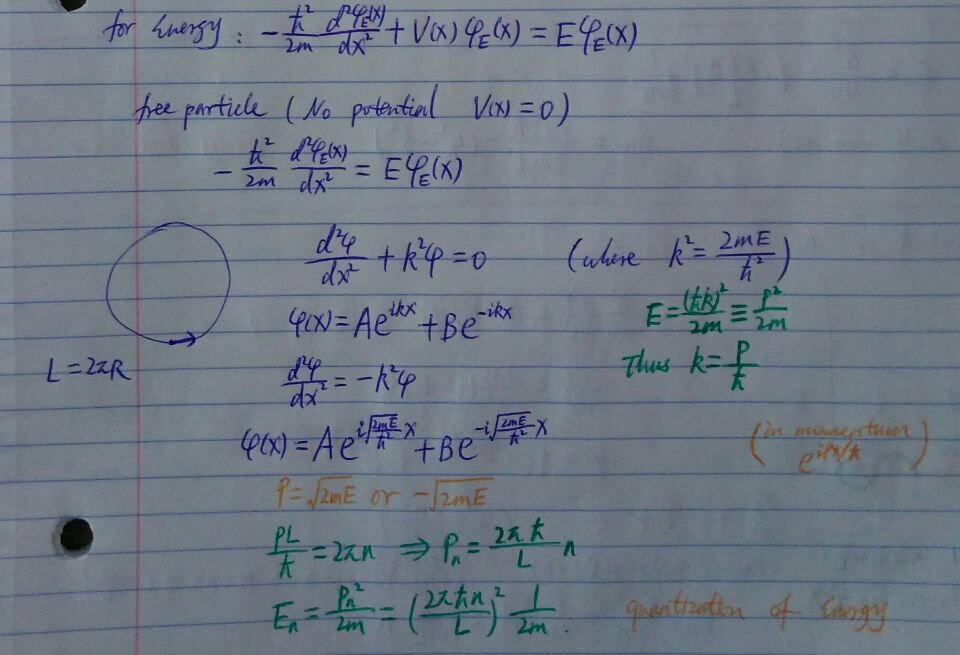 for Energy: -ħ²/2m d²φ_E(x)/dx² + V(x) φ_E(x) = E φ_E(x)
free particle (No potential V(x) = 0)
-ħ²/2m d²φ_E(x)/dx² = E φ_E(x)
d²φ/dx² + k²φ = 0 (where k² = 2mE/ħ²)
φ(x) = Ae^{ikx} + Be^{-ikx} E = (ħk)²/2m ≡ p²/2m
L = 2πR d²φ/dx² = -k²φ Thus k = P/ħ
φ(x) = Ae^{i√(2mE/ħ²) x} + Be^{-i√(2mE/ħ²) x} (in momentum e^{iPx/ħ})
P = √2mE or -√2mE
PL/ħ = 2πn ⇒ P_n = 2πħ/L n
E_n = P_n²/2m = (2πħn/L)² 1/2m. quantization of Energy